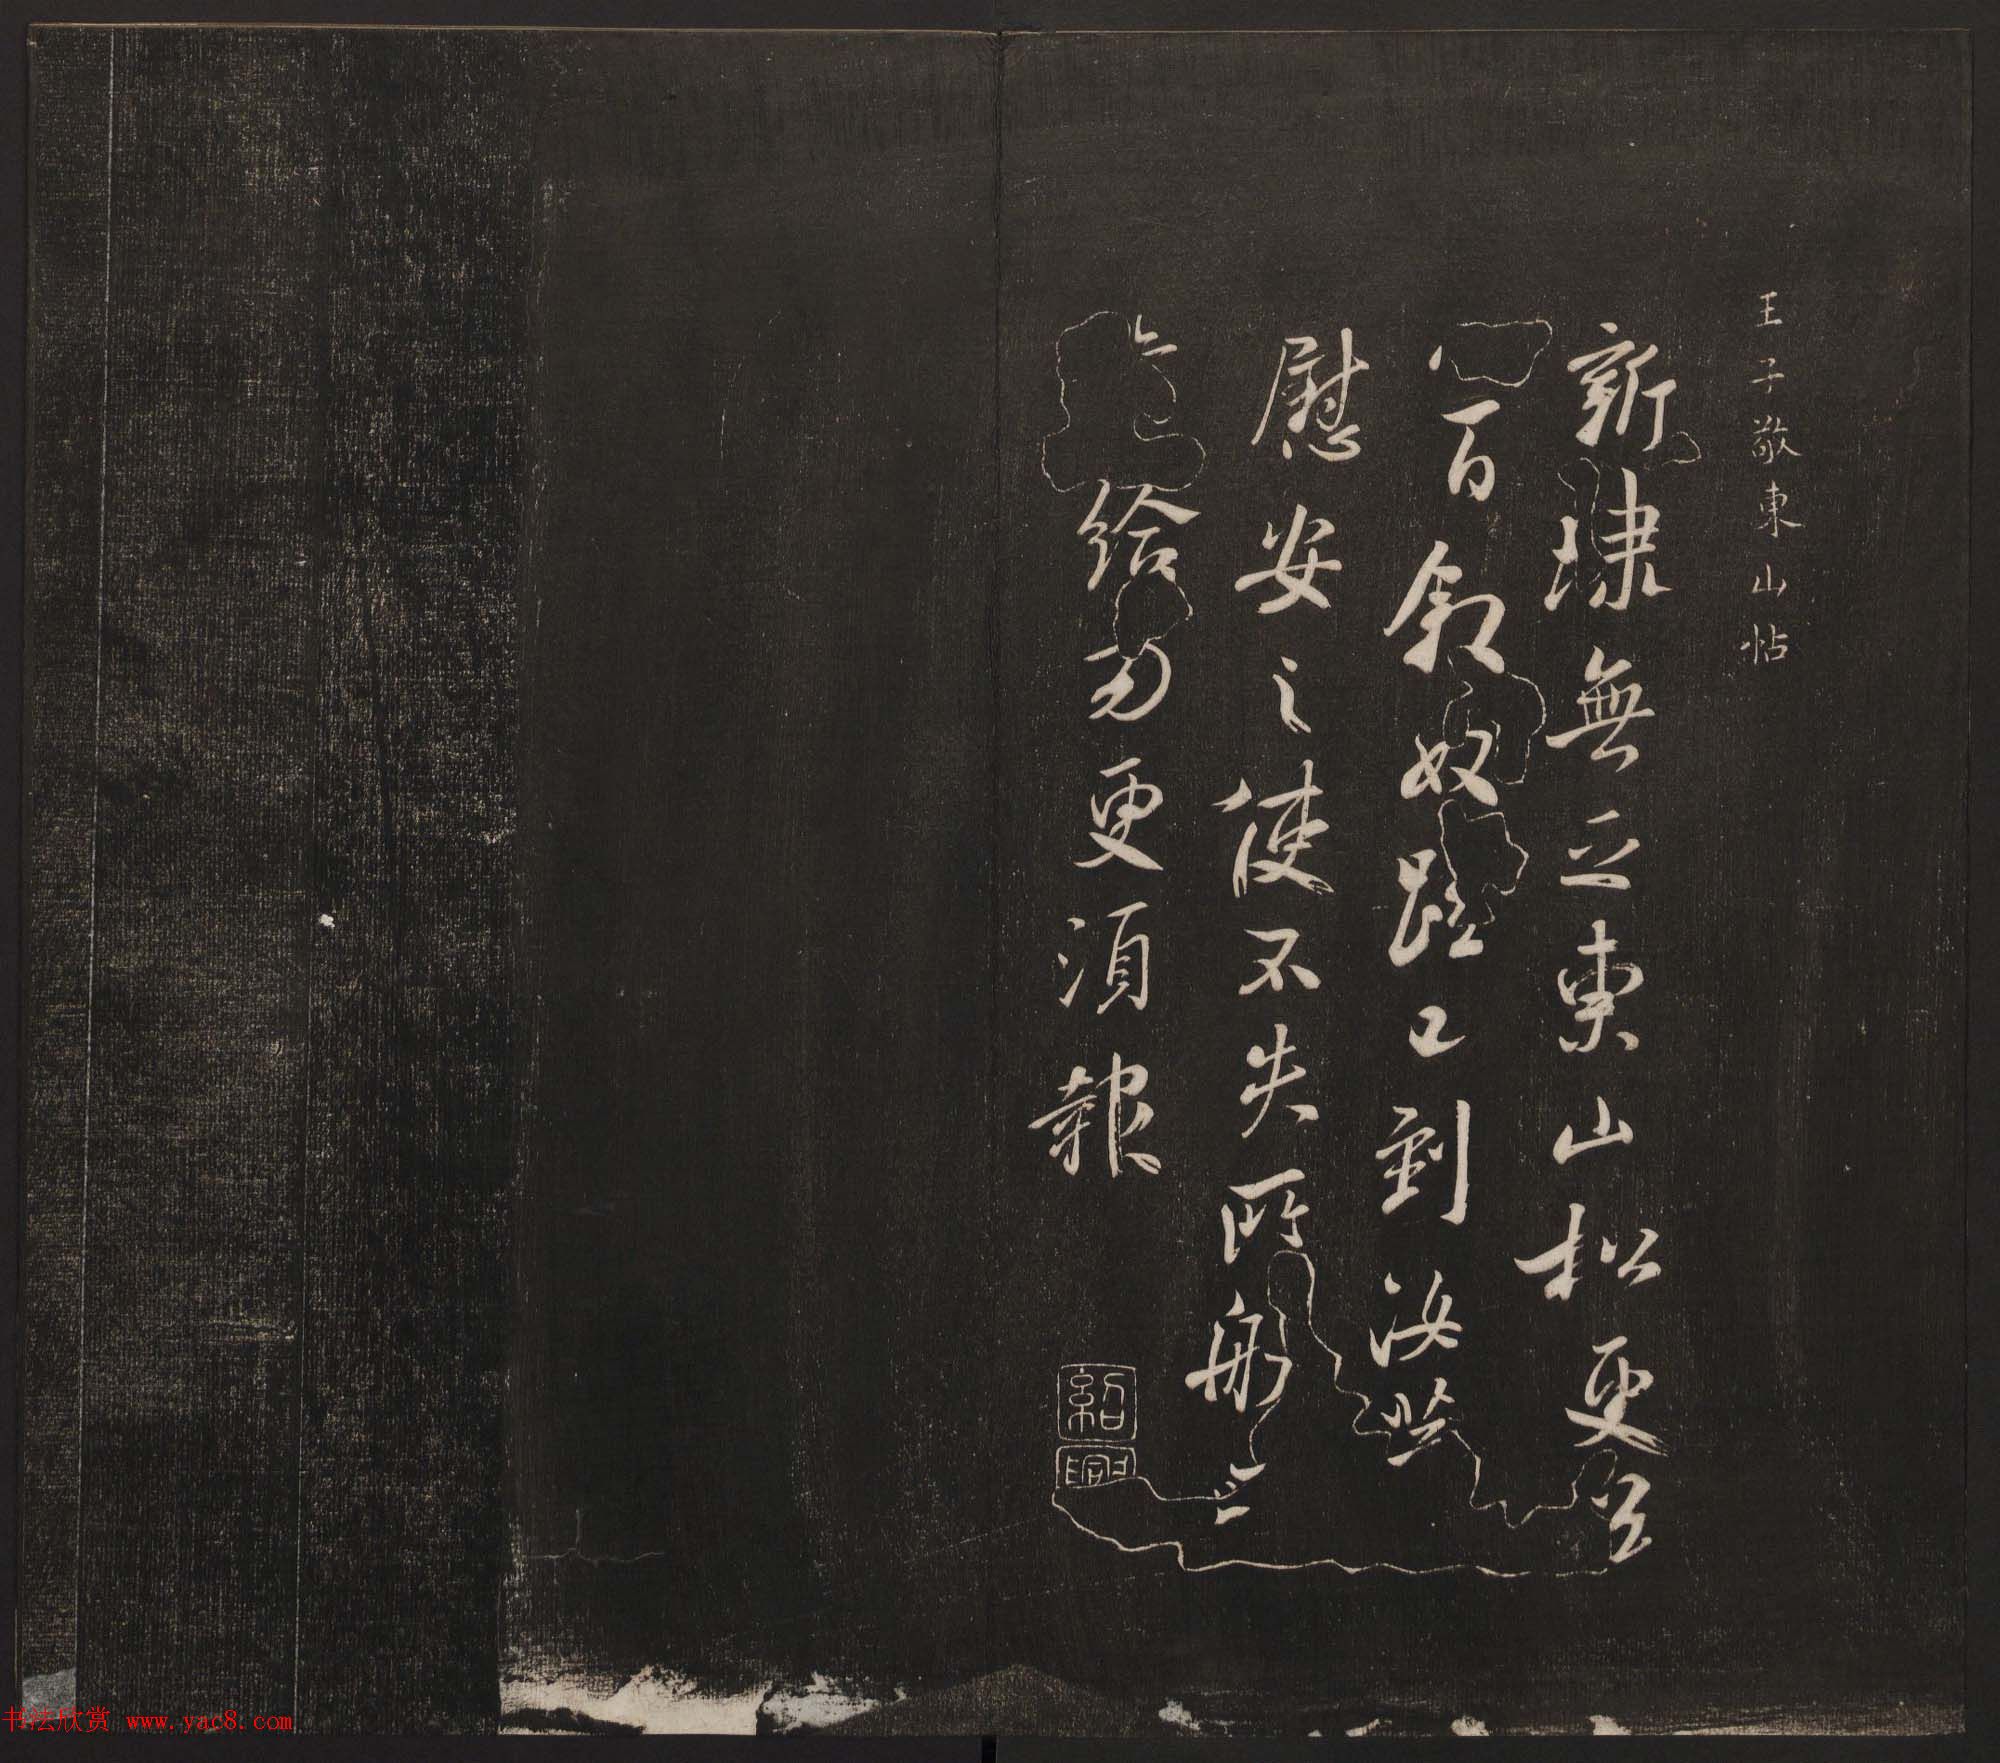 王子敬東山帖
新埭無乏東山松更送
八百叙奴踁已到汝等
慰安之使不失所船
給勿更須報
紹興
书法欣赏 www.yac8.com